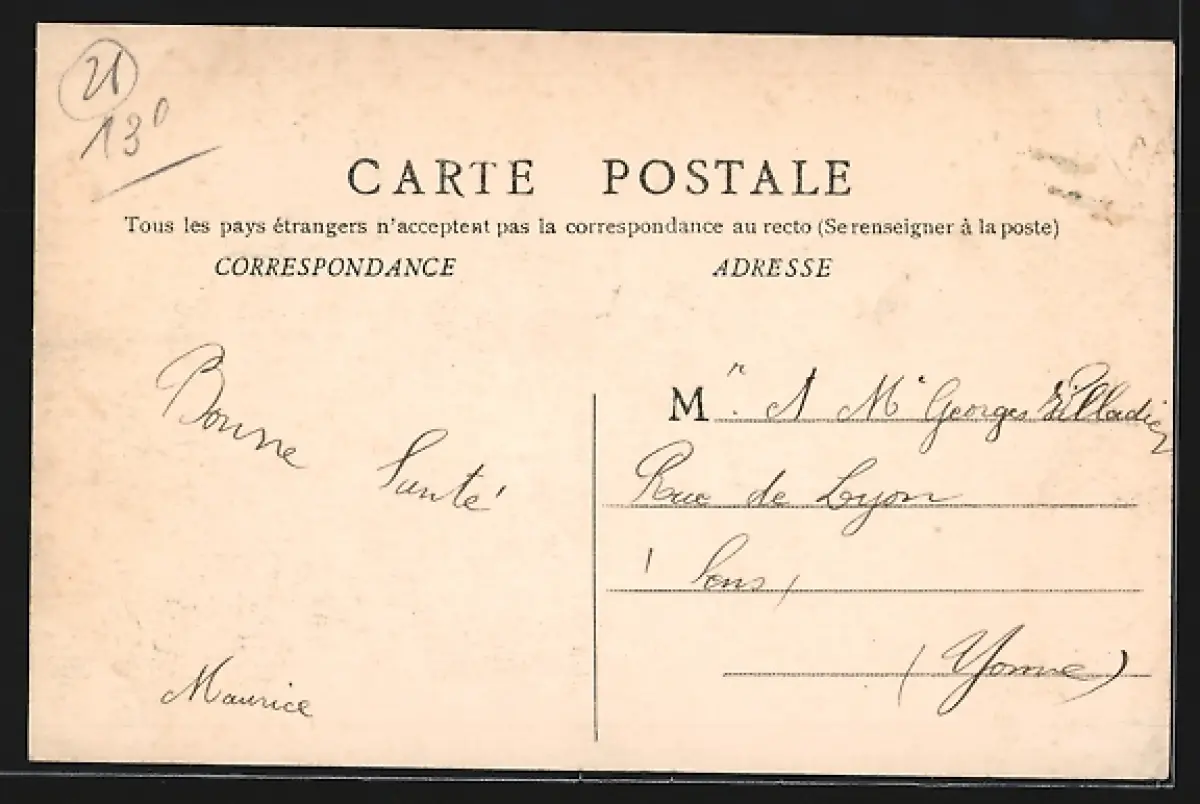 21
130
CARTE POSTALE
Tous les pays étrangers n'acceptent pas la correspondance au recto (Se renseigner à la poste)
CORRESPONDANCE
ADRESSE
Bonne
Santé
Maurice
Mr. et Me Georges
Rue de Lyon
Sens
(Yonne)